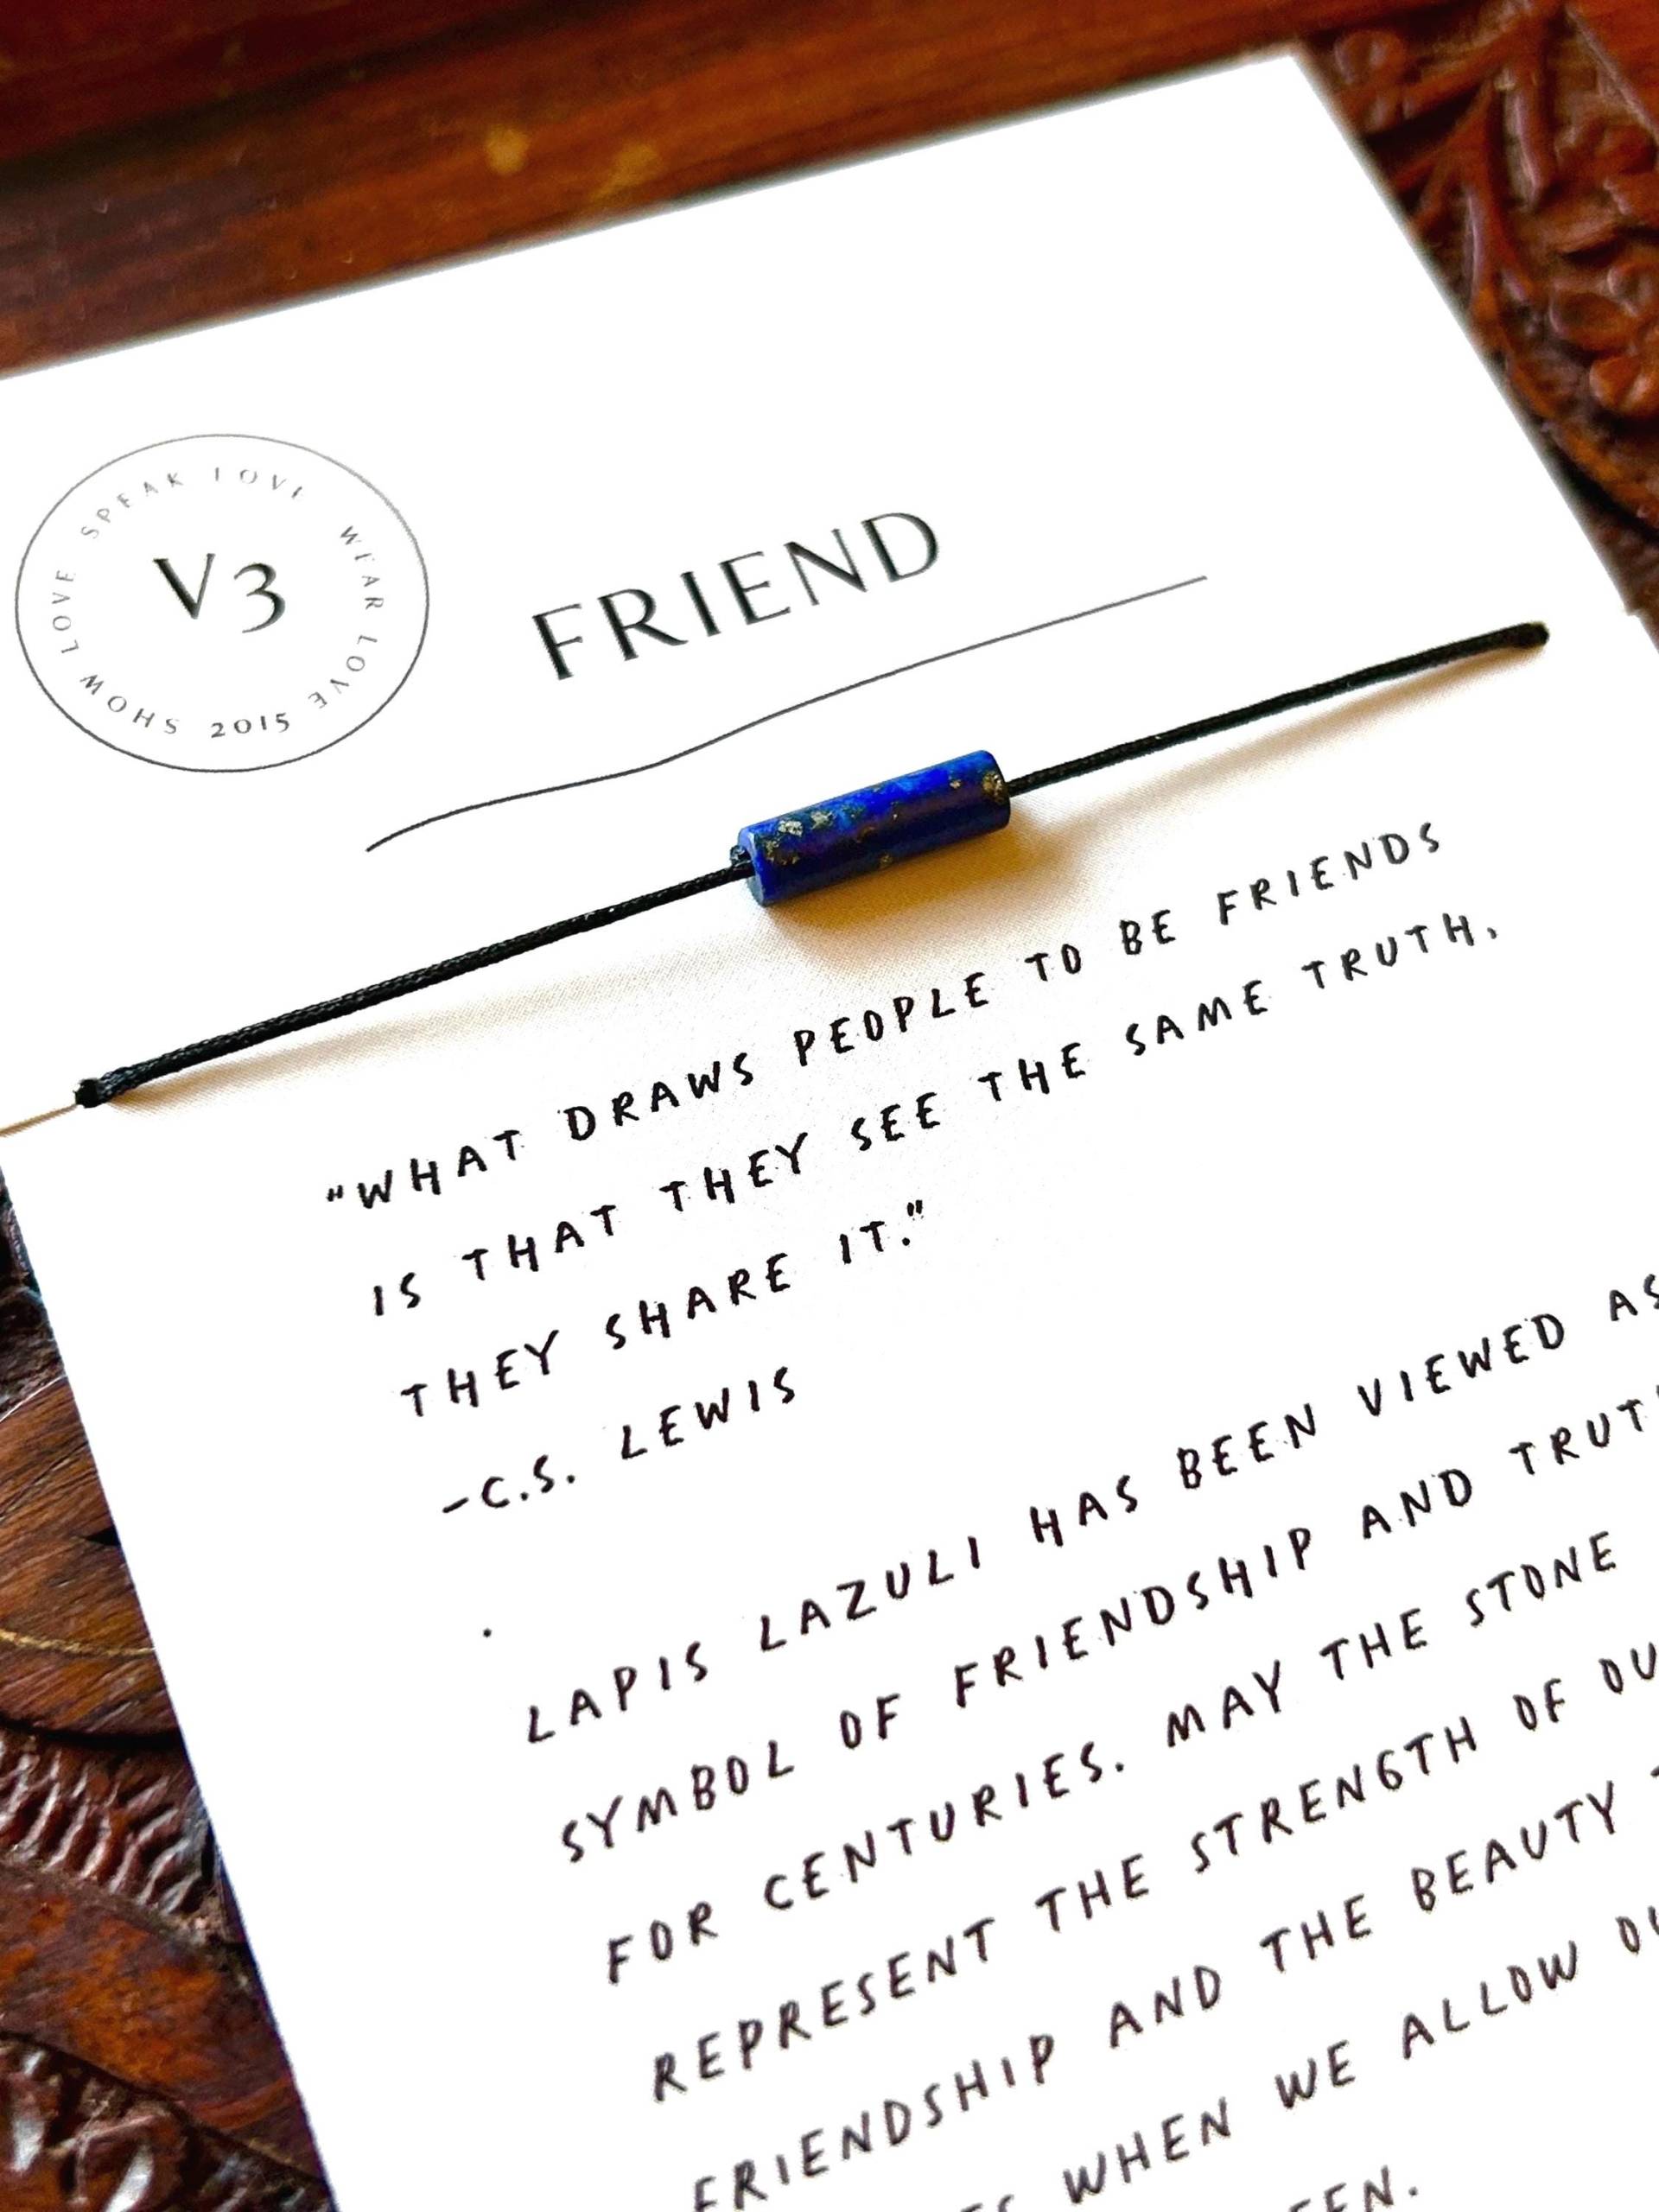 SHOW LOVE SPEAK LOVE WEAR LOVE
V3
2015
FRIEND
"WHAT DRAWS PEOPLE TO BE FRIENDS
IS THAT THEY SEE THE SAME TRUTH,
THEY SHARE IT."
-C.S. LEWIS
.
LAPIS LAZULI HAS BEEN VIEWED AS
SYMBOL OF FRIENDSHIP AND
FOR CENTURIES. MAY THE STONE
REPRESENT THE STRENGTH OF
FRIENDSHIP AND THE BEAUTY
WHEN WE ALLOW